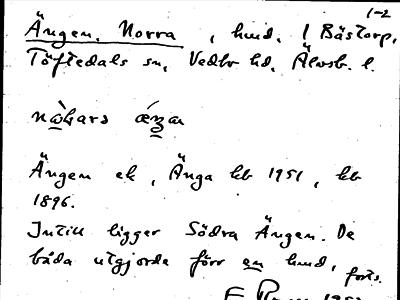 1-2
Ängen, Norra, hmd. 1 Båstorp,
Töftedals sn, Vedbo hd, Älvsb. l.
Ängen ek, Änga kb 1951, kb
1896.
Intill ligger Södra Ängen. De
båda utgjorde förr en hmd,
forts.